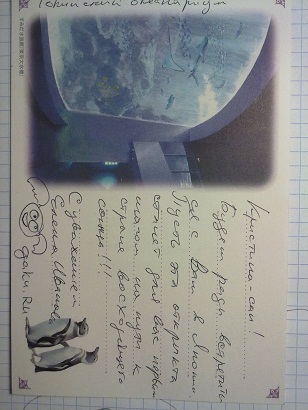 Токийский океанариум
Кристина-сан!
Будем рады встретить-
ся с Вами в Японии
Пусть эта открытка
станет для Вас первым
шагом на пути к
стране восходящего
солнца!!!
С уважением
Елена Иванова
gaku.ru